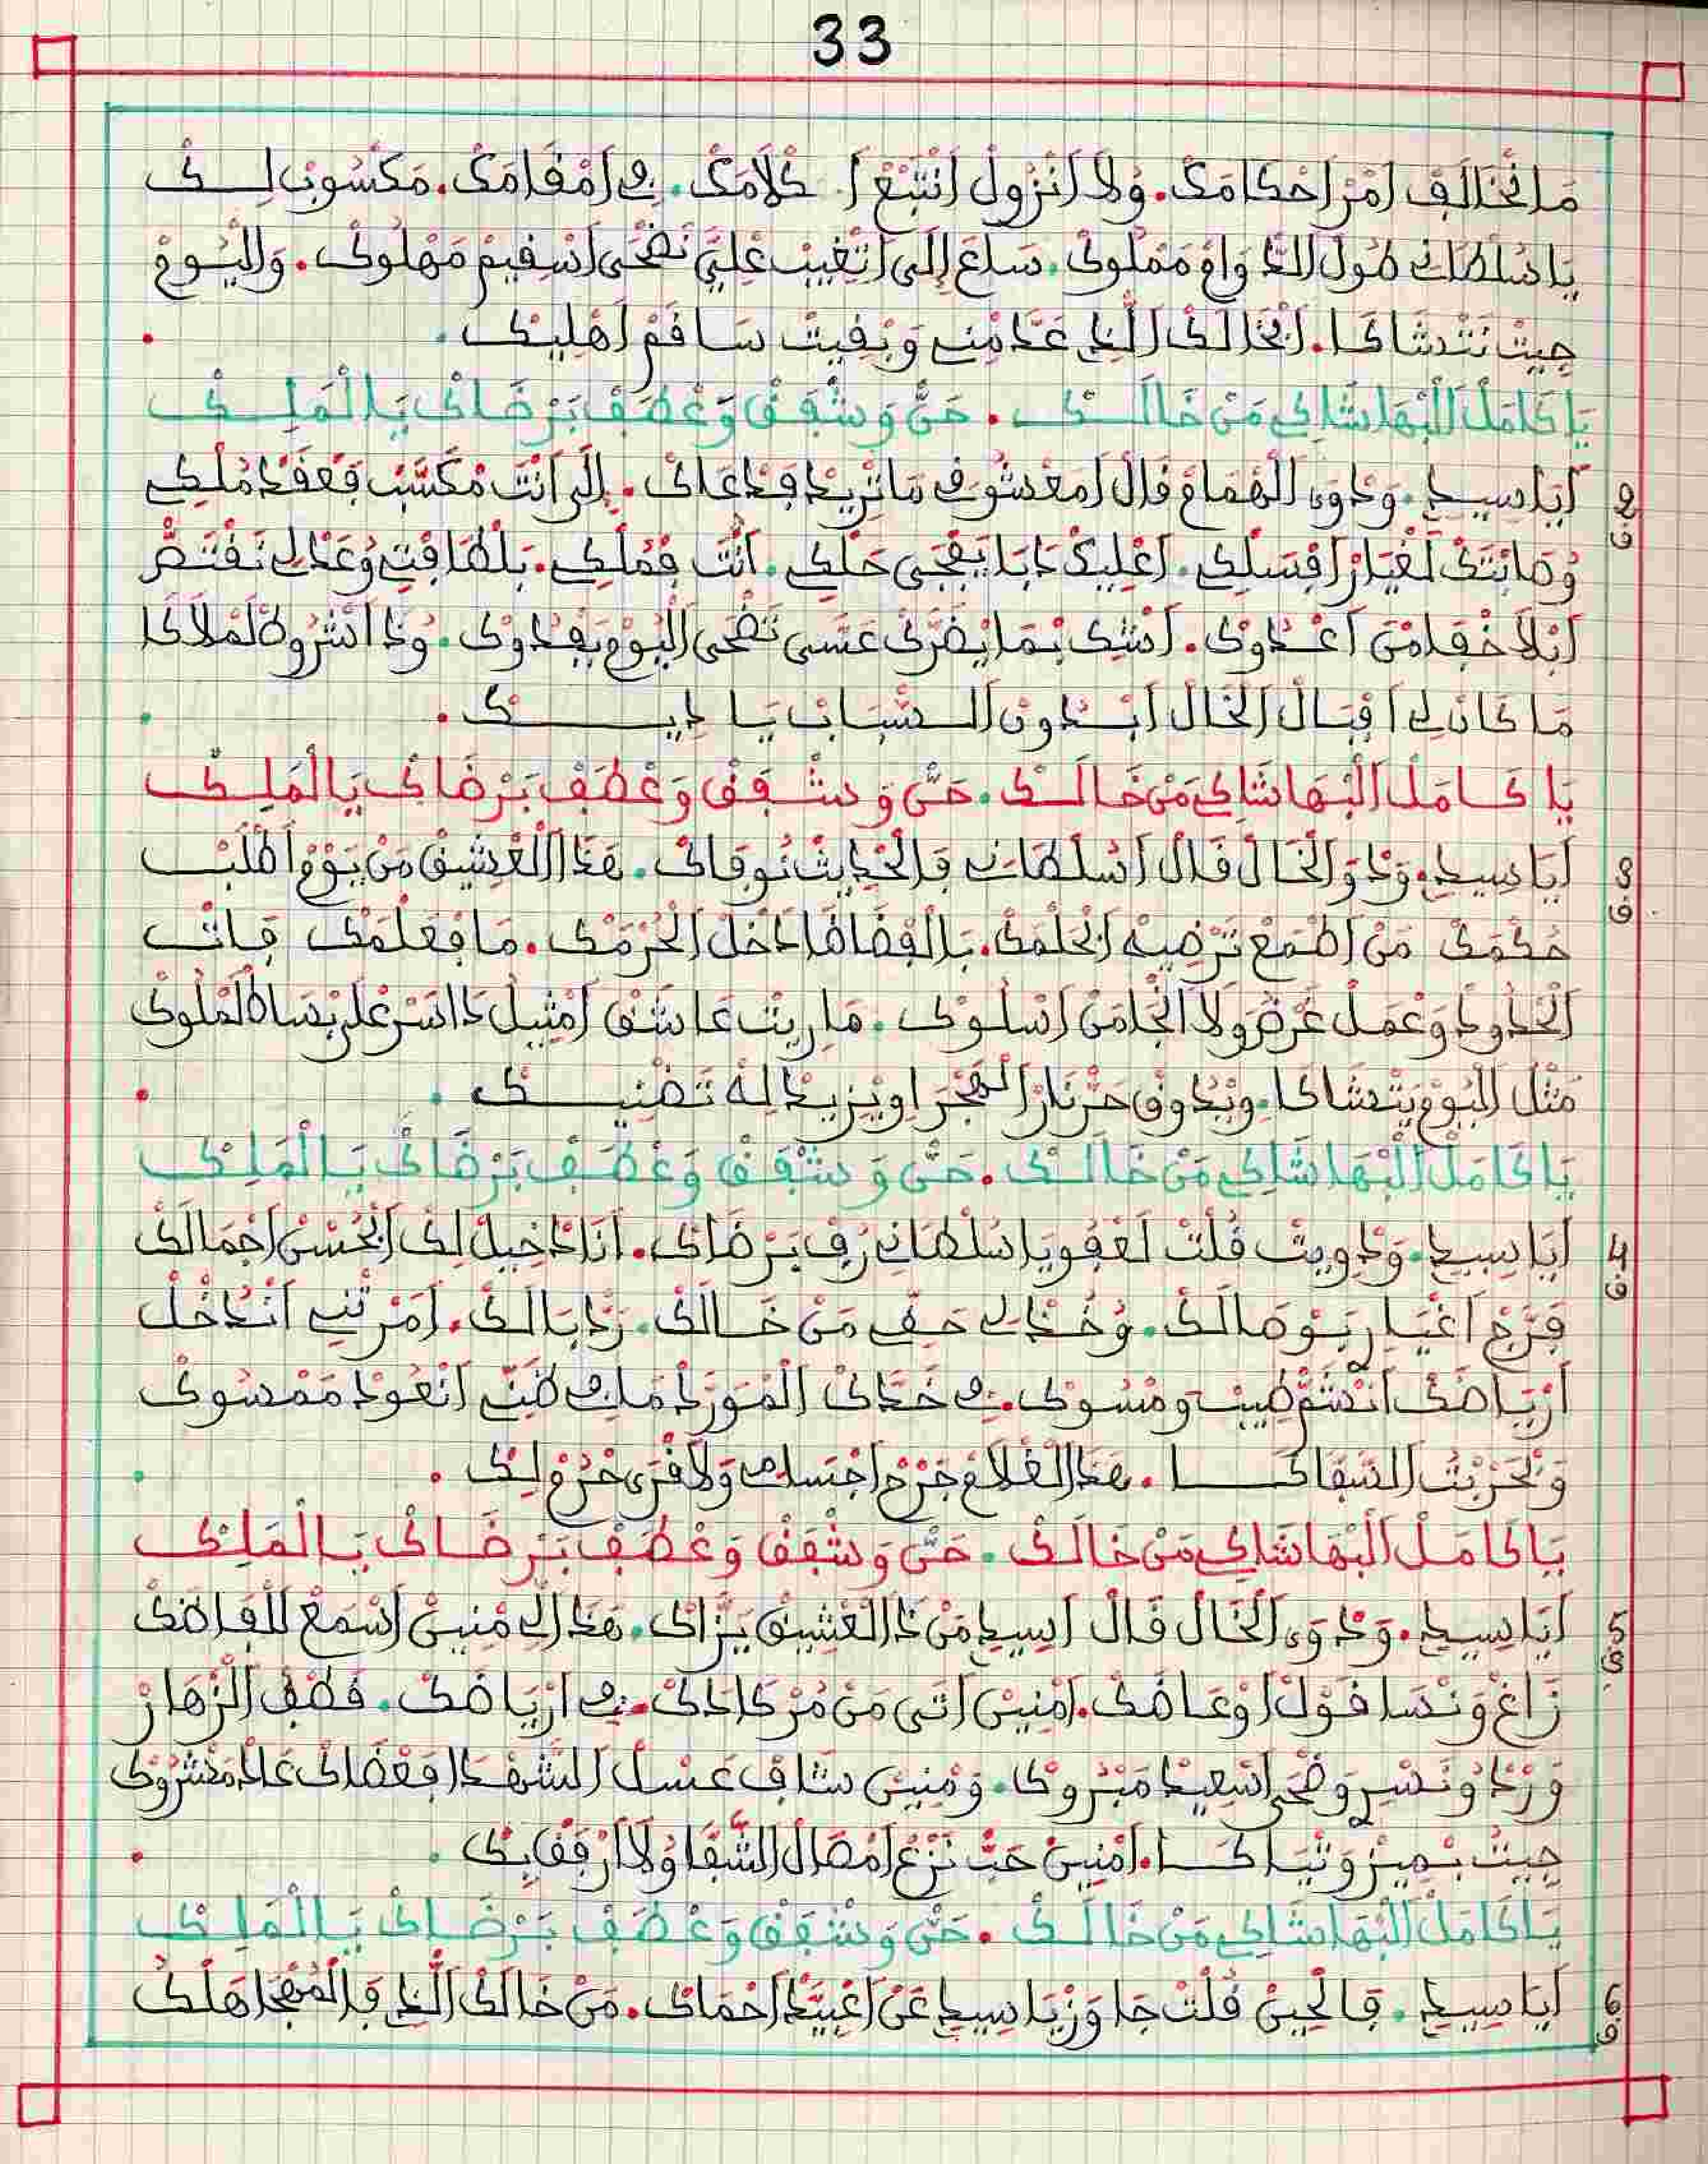 33
مَا نْخَالَفْ اَمْرْ اَحْكَامَكْ. وُلَا اَنْزُولْ اَنْتْبَعْ اَ كْلَامَكْ. فِي اَمْقَامَكْ. مَكْسُوبْ لِكْ
يَا سُلْطَانِي طُولْ الدَّوَامْ مَمْلُوكْ. سَاعَ إِلَى اتْغِيبْ عْلِيَّ نَضْحَى اَسْقِيمْ مَهْلُوكْ. وَالْيُومْ
جِيتْ نَتْشَاكَا. اَبْخَالَكْ الَّذِي عَدَّمْنِي وَبْقِيتْ سَاقَمْ اَهْلِيكْ.
يَا كَامَلْ الْبْهَا شَاكِي مَنْ خَالَكْ. حَنْ وَشْفَقْ وَعْطَفْ بَرْضَاكْ يَا الْمَلِكْ
2 ق
اَيَا سِيدِي. وَدْوَى الْهُمَامْ قَالْ اَمَعْشُوقِي مَا تْرِيدْ فَدْعَاكْ. إِلَى اَنْتَ مْكَسَّبْ فَعْقَدْ مُلْكِي
وُصَابْتَكْ لَغْيَارْ اَفْسَلْكِي. اَعْلِيكْ دَابَا يَفْجَى حَلْكِي. اَنْتَ فْمُلْكِي. بَلْطَافْتِي وُعَدْلِي نَقْتَصّْ
اَبْلَا خْفَا مْنْ اَعْدَاوْكْ. اَشْكْ بْمَا يْضَرَّكْ عَسَى تَضْحَى الْيُومْ يَفْدَوْكْ. وُذَا اشْرُوطْ لَمْلَاكَا
مَا كَانْ لِي اَقْبَالْ الْخَالْ اَبْدُونْ السْبَابْ يَادِيكْ.
يَا كَامَلْ الْبْهَا شَاكِي مَنْ خَالَكْ. حَنْ وَشْفَقْ وَعْطَفْ بَرْضَاكْ يَا الْمَلِكْ
3 ق
اَيَا سِيدِي. وَدْوَى الْخَالْ قَالْ اَسُلْطَانِي فَالْحْدِيثْ نُوفَاكْ. هَذَا الْعْشِيقْ مَنْ يَوْمْ اَطْلَبْ
حُكْمَكْ مَنْ اَطْمَعْ تَرْضِيهْ اَبْحْلَمَكْ. بَالْفْضَاضَا دَاخْلْ الْحُرْمَكْ. مَا فْعَلْمَكْ فَاتْ
الْحْدُودْ وَعْمَلْ غَرْضُ وَلَا الْجَا مَنْ اَسْلُوكْ. مَا رِيتْ عَاشَقْ اَمْثِيلْ دَا اسَرْ عْلَى بْسَاطْ لَمْلُوكْ
مَثْلْ الْيُومْ يَتْشَاكَا. وِيْدُوقْ حَرّْ نَارْ الْهَجْرَ اوِيْزِيدْ لِهْ تَضْنِيكْ.
يَا كَامَلْ الْبْهَا شَاكِي مَنْ خَالَكْ. حَنْ وَشْفَقْ وَعْطَفْ بَرْضَاكْ يَا الْمَلِكْ
4 ق
اَيَا سِيدِي. وَدْوِيتْ قُلْتْ لَعْفُو يَا سُلْطَانِي رُفْ بَرْضَاكْ. اَنَا دْخِيلْ لِكْ اَبْحُسْنْ اَجْمَالَكْ
فَرَّجْ اَغْيَارِي بَوْصَالَكْ. وُخُذْ لِي حَقِّي مَنْ خَالَكْ. رَدّْ بَالَكْ. اَمَرْتْنِي اَنْدْخُلْ
اَرْيَاضَكْ اَنْشَمّْ طِيبْ وَمْسُوكْ. فِي خَدَّكْ الْمُوَرَّدْ مَا فِي ظَنِّي اَنْعُودْ مَمْسُوكْ
وَبْحَرْبْتْ السَّفَاكَا. هَذَا الْغُلَامْ جَرَّحْ اَجْسَدِي وَلَا قْرَى حُرْمْ لِكْ.
يَا كَامَلْ الْبْهَا شَاكِي مَنْ خَالَكْ. حَنْ وَشْفَقْ وَعْطَفْ بَرْضَاكْ يَا الْمَلِكْ
5 ق
اَيَا سِيدِي. وَدْوَى الْخَالْ قَالْ اَسِيدِي مَنْ ذَا الْعْشِيقْ يَزَّاكْ. هَذَا الِّي مْنِينْ اَسْمَعْ لَلْفَاضَكْ
زَاغْ وَنْسَا قَوْلْ اَوْعَاضَكْ. اَمْنِينْ اَتَى مَنْ مُرْكَادَكْ. فِي اَرْيَاضَكْ. قْطَفْ الزّْهَارْ
وَرْدْ وُنَسْرِي وَضْحَى اَسْعِيدْ مَبْرُوكْ. وَمْنِينْ شَافْ عَسْلْ الشَّهْدَا فَعْضَاكْ عَادْ مَشْرُوكْ
جِيتْ بْمِيزْ وَتْيَاكَا. اَمْنِينْ حَبّْ نَزْعْ اَمْصَالْ الشّْفَا وُلَا اَرْفَقْ بِكْ.
يَا كَامَلْ الْبْهَا شَاكِي مَنْ خَالَكْ. حَنْ وَشْفَقْ وَعْطَفْ بَرْضَاكْ يَا الْمَلِكْ
6 ق
اَيَا سِيدِي. فَالْحِينْ قُلْتْ جَاوَزْ يَا سِيدِي عَنْ اَغْيَّدْ اَحْمَاكْ. مَنْ خَالَكْ الَّذِي فَالْمُهْجَا هَلْكْ